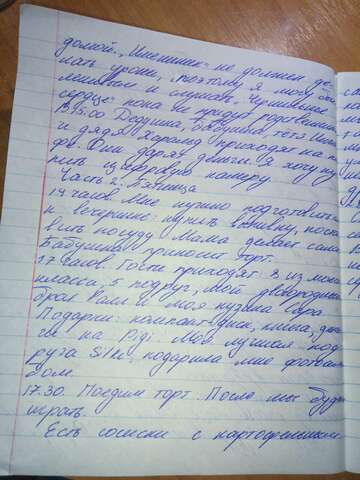 домой. „Именинник" не должен де-
лать уроки, поэтому я могу
и слушать „Чернильное
сердце" пока не придут родственники.
15.00 Дедушка, бабушка, тётя
и дядя Харальд приходят на ко-
фе. Они дарят деньги. Я хочу ку-
пить цифровую камеру.
Часть 2: Пятница
14 часов. Мне нужно подготовиться
к вечеринке: купить
вить посуду. Мама делает салат
Бабушка приносит торт.
17 часов. Гости приходят: 8 из моего
класса, 5 подруг, мой двоюродный
брат Ралли и моя кузина Сара.
Подарки: компакт-диск, книга, день-
ги на Pigi. Моя лучшая под-
руга Silke подарила мне фотоаль-
бом.
17.30. Поедим торт. После мы будем
играть.
Есть сосиски с картофельным